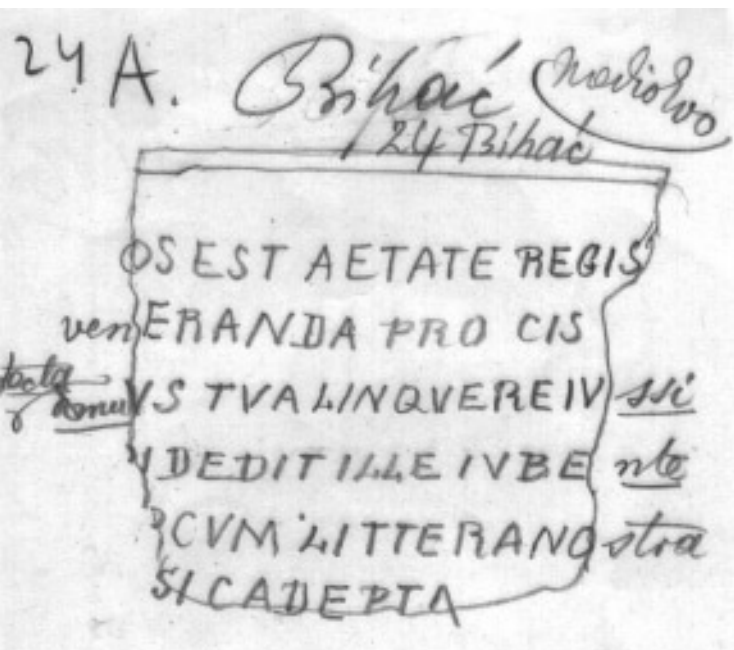 24 A. Bihać
24 Bihać
OS EST AETATE REGIS
venERANDA PRO CIS
VS TVA LINQVERE IV ssi
DEDIT ILLE IVBE nte
CVM LITTERA NO stra
SI CADEPTA